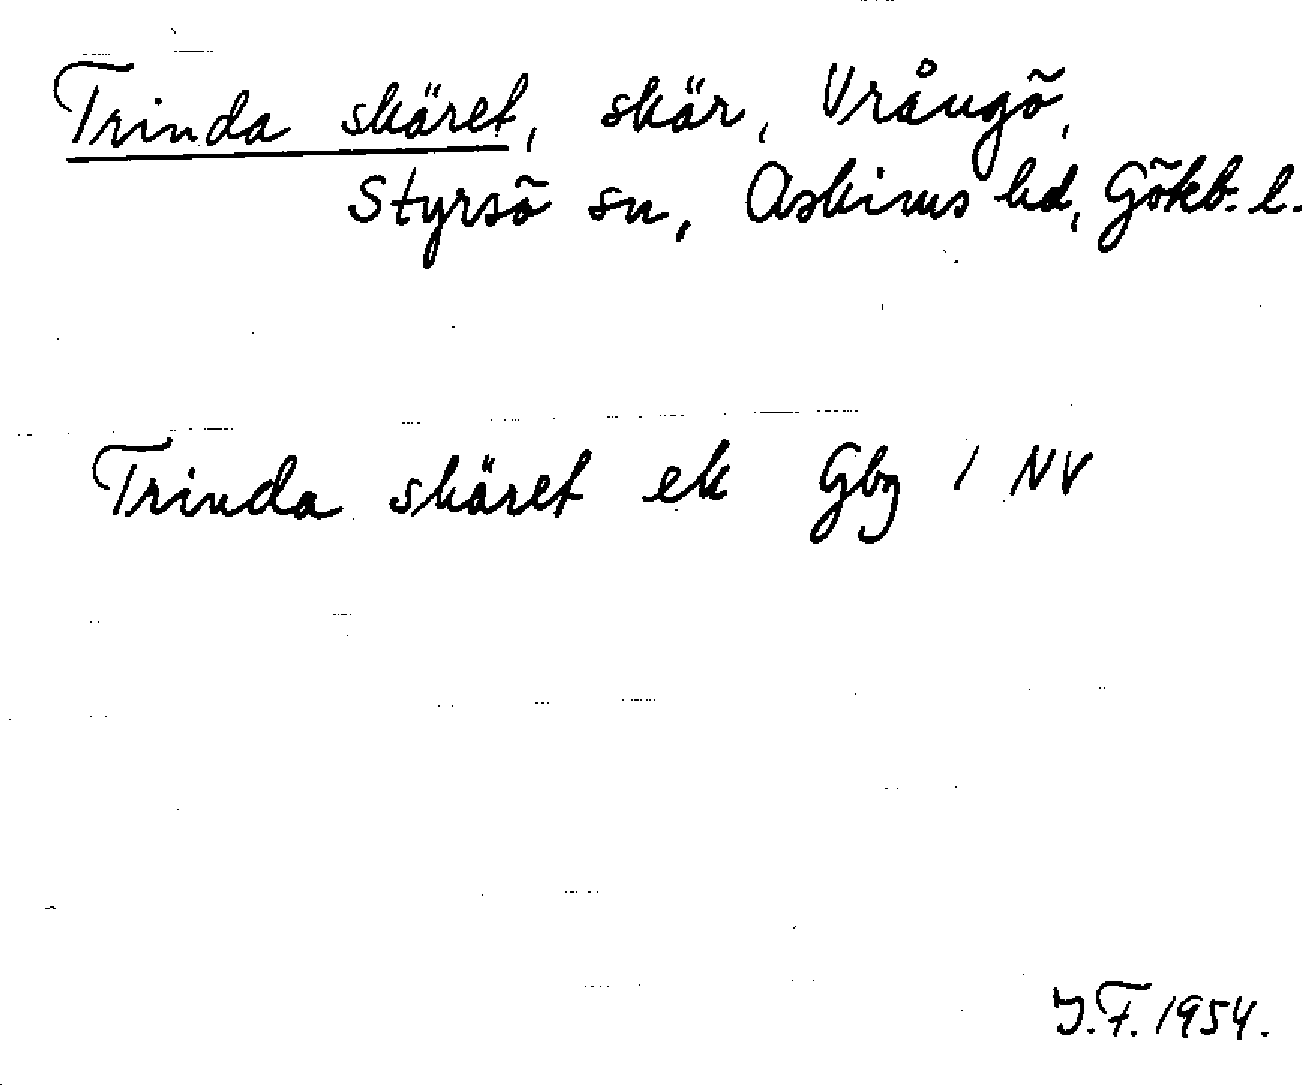 Trinda skäret, skär, Vrångö,
Styrsö sn, Askims hd, Gökb. l.
Trinda skäret ek Gbg 1 NV
J.F. 1954.